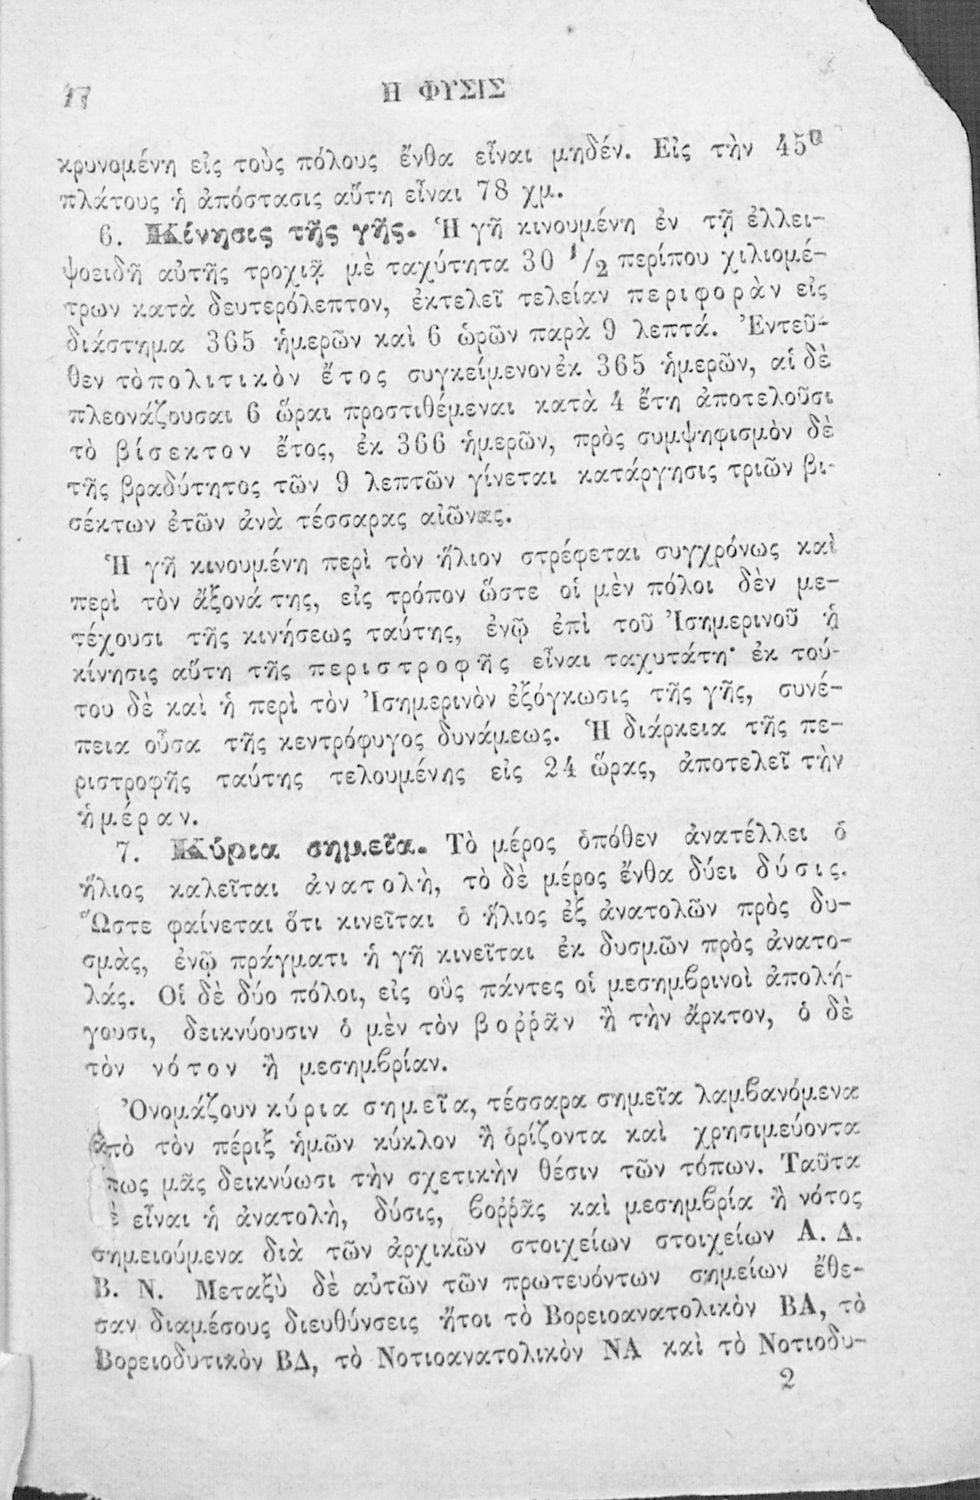 17
Η ΦΥΣΙΣ
κρυνομένη εἰς τοὺς πόλους ἔνθα εἶναι μηδέν. Εἰς τὴν 45⁰
πλάτους ἡ ἀπόστασις αὕτη εἶναι 78 χμ.
6. Κίνησις τῆς γῆς. Ἡ γῆ κινουμένη ἐν τῇ ἐλλει-
ψοειδῆ αὐτῆς τροχιᾷ μὲ ταχύτητα 30 1/2 περίπου χιλιομέ-
τρων κατὰ δευτερόλεπτον, ἐκτελεῖ τελείαν περιφορὰν εἰς
διάστημα 365 ἡμερῶν καὶ 6 ὡρῶν παρὰ 9 λεπτά. Ἐντεῦ-
θεν τὸ πολιτικὸν ἔτος συγκείμενον ἐκ 365 ἡμερῶν, αἱ δὲ
πλεονάζουσαι 6 ὧραι προστιθέμεναι κατὰ 4 ἔτη ἀποτελοῦσι
τὸ βίσεκτον ἔτος, ἐκ 366 ἡμερῶν, πρὸς συμψηφισμὸν δὲ
τῆς βραδύτητος τῶν 9 λεπτῶν γίνεται κατάργησις τριῶν βι-
σέκτων ἐτῶν ἀνὰ τέσσαρας αἰῶνας.
Ἡ γῆ κινουμένη περὶ τὸν ἥλιον στρέφεται συγχρόνως καὶ
περὶ τὸν ἄξονά της, εἰς τρόπον ὥστε οἱ μὲν πόλοι δὲν με-
τέχουσι τῆς κινήσεως ταύτης, ἐνῷ ἐπὶ τοῦ Ἰσημερινοῦ ἡ
κίνησις αὕτη τῆς περιστροφῆς εἶναι ταχυτάτη· ἐκ τού-
του δὲ καὶ ἡ περὶ τὸν Ἰσημερινὸν ἐξόγκωσις τῆς γῆς, συνέ-
πεια οὖσα τῆς κεντρόφυγος δυνάμεως. Ἡ διάρκεια τῆς πε-
ριστροφῆς ταύτης τελουμένης εἰς 24 ὥρας, ἀποτελεῖ τὴν
ἡμέραν.
7. Κύρια σημεῖα. Τὸ μέρος ὁπόθεν ἀνατέλλει ὁ
ἥλιος καλεῖται ἀνατολὴ, τὸ δὲ μέρος ἔνθα δύει δύσις.
Ὥστε φαίνεται ὅτι κινεῖται ὁ ἥλιος ἐξ ἀνατολῶν πρὸς δυ-
σμὰς, ἐνῷ πράγματι ἡ γῆ κινεῖται ἐκ δυσμῶν πρὸς ἀνατο-
λάς. Οἱ δὲ δύο πόλοι, εἰς οὓς πάντες οἱ μεσημβρινοὶ ἀπολή-
γουσι, δεικνύουσιν ὁ μὲν τὸν βοῤῥᾶν ἢ τὴν ἄρκτον, ὁ δὲ
τὸν νότον ἢ μεσημβρίαν.
Ὀνομάζουν κύρια σημεῖα, τέσσαρα σημεῖα λαμβανόμενα
ἀπὸ τὸν πέριξ ἡμῶν κύκλον ἢ ὁρίζοντα καὶ χρησιμεύοντα
πως μᾶς δεικνύωσι τὴν σχετικὴν θέσιν τῶν τόπων. Ταῦτα
ὲ εἶναι ἡ ἀνατολὴ, δύσις, βοῤῥᾶς καὶ μεσημβρία ἢ νότος
σημειούμενα διὰ τῶν ἀρχικῶν στοιχείων στοιχείων Α. Δ.
Β. Ν. Μεταξὺ δὲ αὐτῶν τῶν πρωτευόντων σημείων ἔθε-
σαν διαμέσους διευθύνσεις ἤτοι τὸ Βορειοανατολικὸν ΒΑ, τὸ
Βορειοδυτικὸν ΒΔ, τὸ Νοτιοανατολικὸν ΝΑ καὶ τὸ Νοτιοδυ-
2